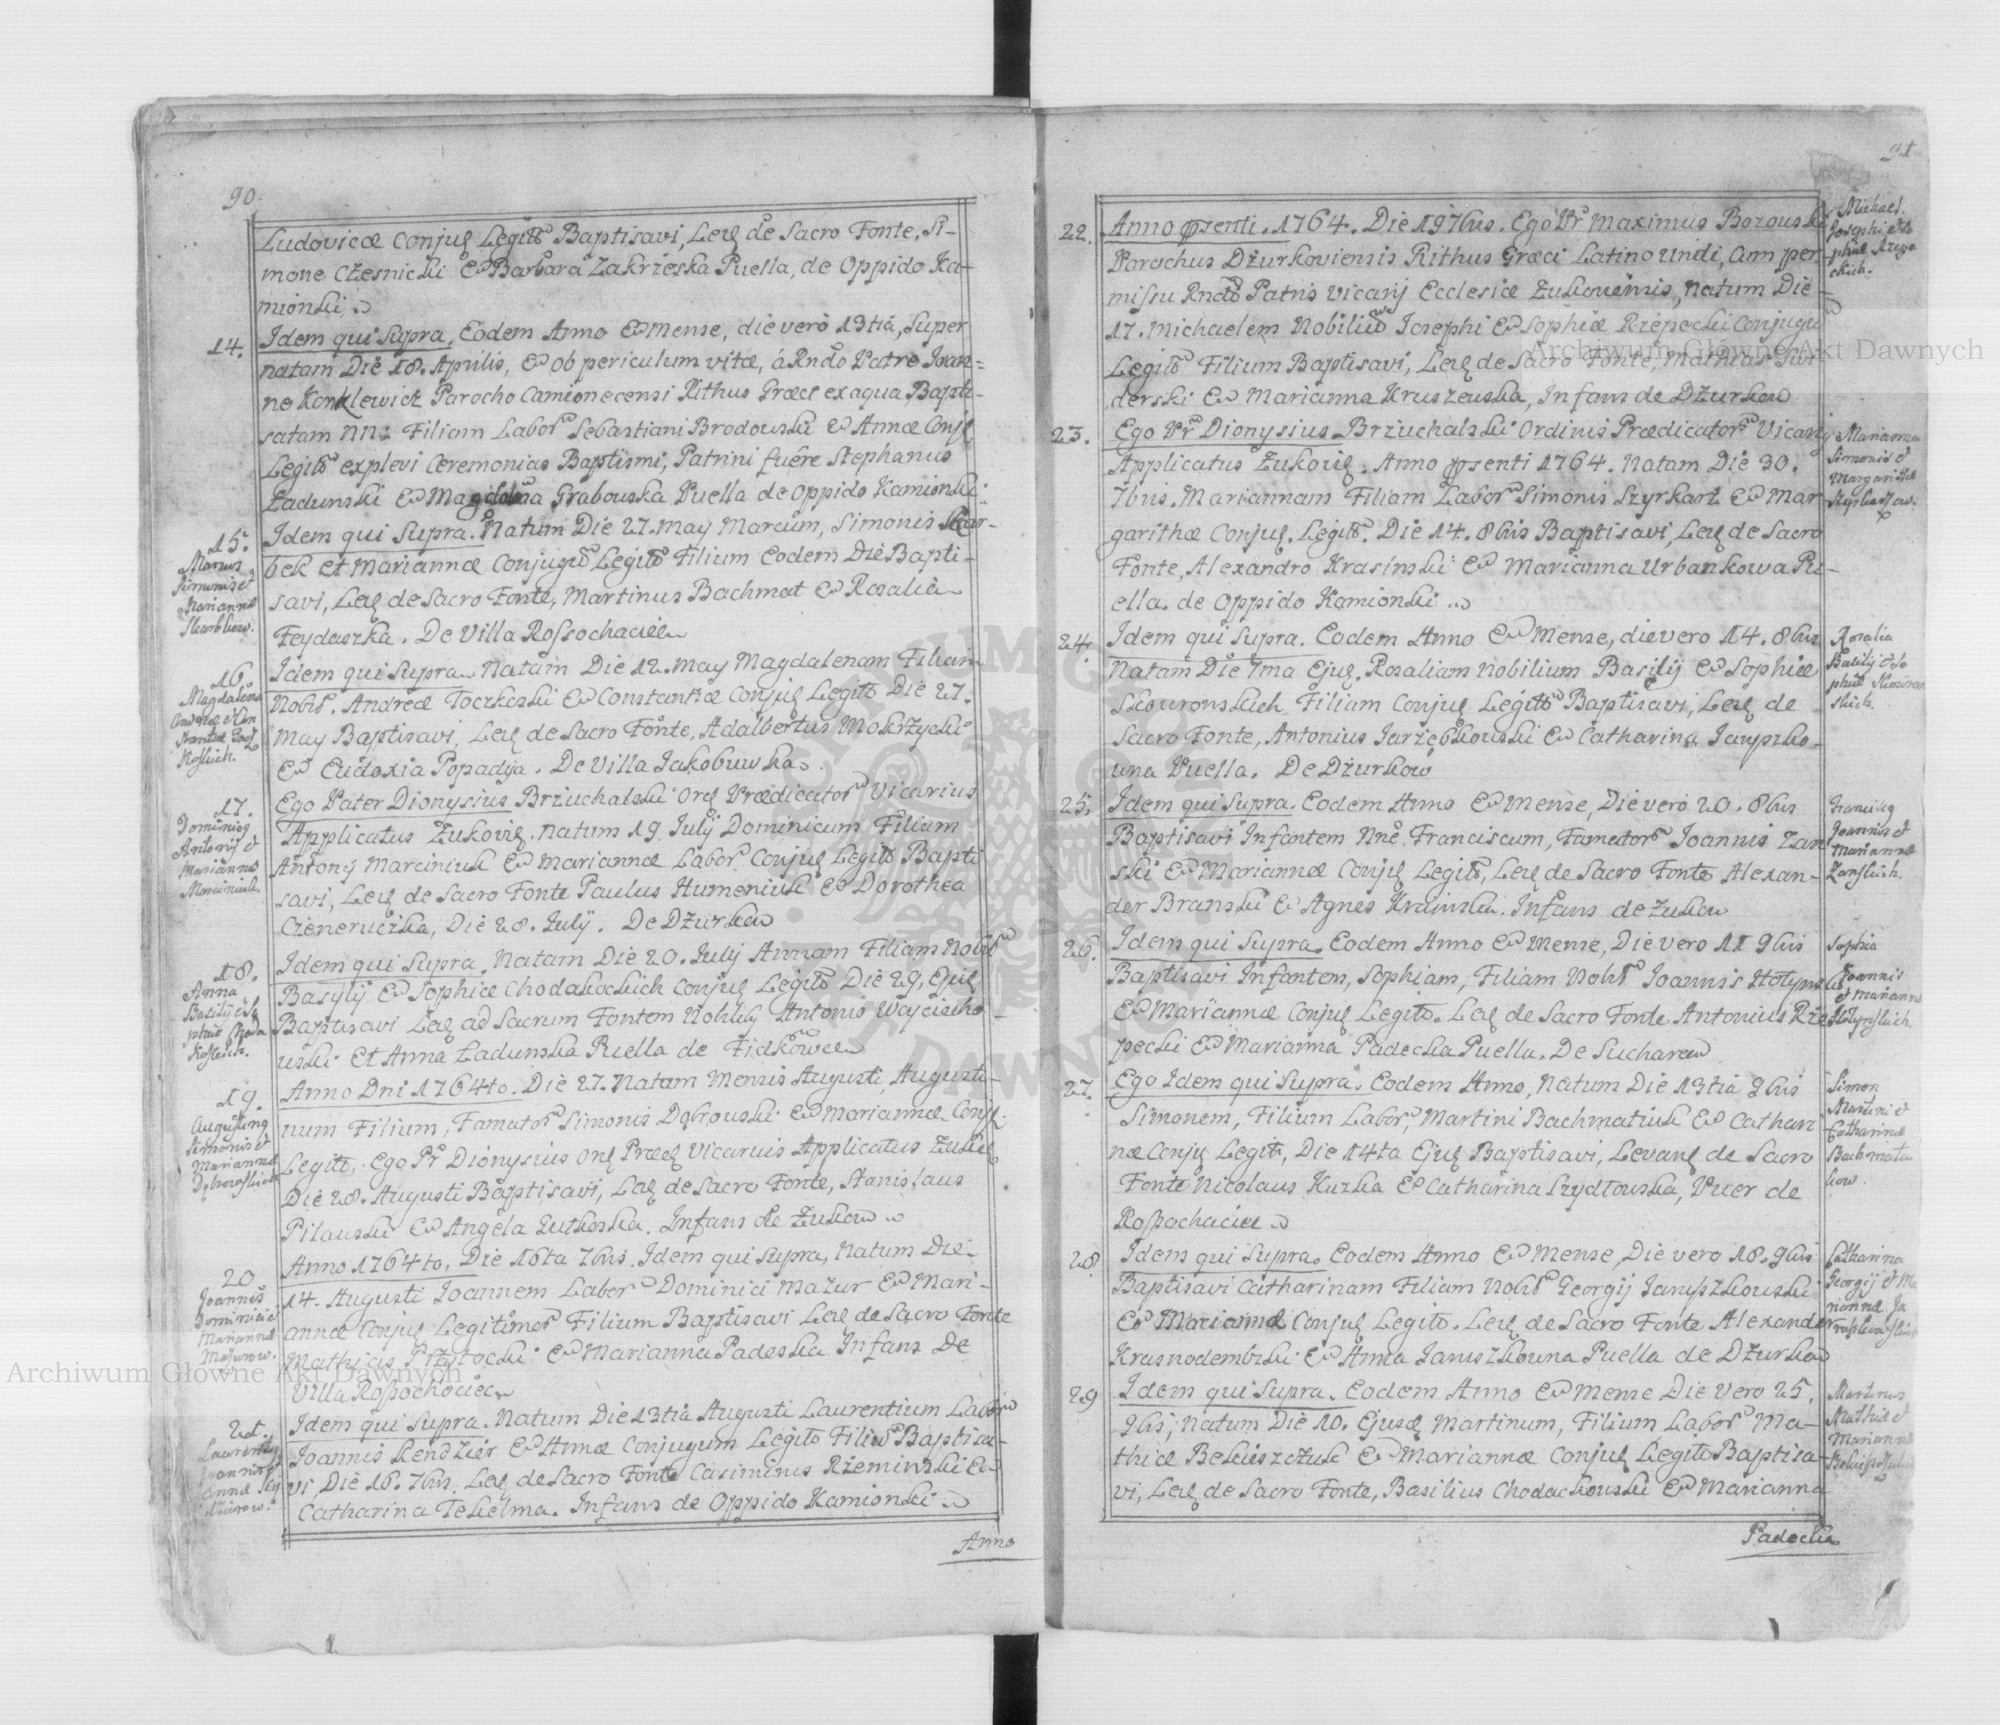 90.
Ludovicæ Conjug Legittō Baptisavi, Levg de Sacro Fonte, Si-
mone Czesnicki & Barbara Zakrzeska Puella, de Oppido Ka-
mionki
14.
Idem qui Supra, Eodem Anno & Mense, die verò 13tia, Super
natam Die 18. Aprilis, & ob periculum vitæ, á Rndo Patre Joan-
ne Konklewicz Parocho Camionecensi Rithus Græci ex aqua Bapti-
satam NN: Filiam Labor Sebastiani Brodowski & Annæ Conj
Legitt explevi Ceremonias Baptismi, Patrini fuêre Stephanus
Ładunski & Magdalena Grabowska Puella de Oppido Kamionki
15.
Marcus
Simonis et
Mariannæ
Skarbkow.
Idem qui Supra. Natum Die 27. May Marcum, Simonis Skar-
bek et Mariannæ Conjugū Legittō Filium Eodem Die Bapti-
savi, Levg de Sacro Fonte, Martinus Bachmat & Rosalia
Feydaszka. De Villa Rossochaciec
16.
Magdalena
Andreæ & Con
stantiæ Tocz
koskich.
Idem qui Supra. Natam Die 12. May Magdalenam Filiam
Nobil. Andreæ Toczkoski & Constantiæ Conjug Legitto Die 27.
May Baptisavi, Levg de Sacro Fonte, Adalbertus Mokrzycki
& Eudoxia Popadija. De Villa Jakobuwka.
17.
Dominicg
Antonij et
Mariannæ
Marciniuk.
Ego Pater Dionysius Brzuchalski Ord Prædicator Vicarius
Applicatus Zukovig. Natum 19 July Dominicum Filium
Antonij Marciniuk & Mariannæ Labor Conjug Legitto Bapti
savi, Levg de Sacro Fonte Paulus Humeniuk & Dorothea
Czeneruczka, Die 28. July. De Dzurkow
18.
Anna
Basilij & So
phiæ Choda
koskich.
Idem qui Supra. Natam Die 20. July Annam Filiam Nobil
Basylij & Sophiæ Chodakoskich Conjug Legitto Die 29. Ejug
Baptisavi Levg ad Sacrum Fontem Nobileg Antonio Woyciecho-
wski et Anna Ładunska Puella de Fidkowce
19.
Augusting
Simonis et
Mariannæ
Dąbrowskich
Anno Dni 1764to. Die 27. Natam Mensis Augusti, Augusti-
num Filium, Famator Simonis Dąbrowski & Mariannæ Conj
Legitto. Ego Pr Dionysius Ord Præd Vicarius Applicatus Zukov
Die 28. Augusti Baptisavi, Levg de Sacro Fonte, Stanislaus
Pilawski & Angela Gutkoska. Infans de Zukow
20
Joannis
Dominici et
Mariannæ
Mazurow.
Anno 1764to. Die 16ta 7bris. Idem qui Supra, Natum Die
14. Augusti Joannem Labor Dominici Mazur & Mari-
annæ Conjug Legitimor Filium Baptisavi Levg de Sacro Fonte
Mathias Przytocki & Marianna Padeska Infans De
Villa Rossochaciec
21.
Laurentig
Joannis et
Annæ
Idem qui Supra. Natum Die 13tia Augusti Laurentium Labor
Joannis Kendzier & Annæ Conjugum Legitto Filiū Baptisa-
vi, Die 16. 7bris. Levg de Sacro Fonte Casimirus Rzeminski &
Catharina Tekelma. Infans de Oppido Kamionki
Anno
91
22.
Anno præsenti. 1764. Die 19 7bris. Ego Pr Maximus Borouski
Parochus Dzurkoviensis Rithus Græci Latino Uniti, Cum per-
missu Rndi Patris Vicarij Ecclesiæ Zukoviensis, Natum Die
17. Michaelem Nobiliū Josephi & Sophiæ Rzepecki Conjugū
Legittō Filium Baptisavi, Levg de Sacro Fonte, Mathias Swi
derski & Marianna Kruszeuska, Infans de Dzurkow
Michael.
Josephi et So
phiæ Rzepe
ckich.
23.
Ego Pr Dionysius Brzuchalski Ordinis Prædicator Vicarij
Applicatus Zukovig. Anno præsenti 1764. Natam Die 30.
7bris. Mariannam Filiam Labor Simonis Szyrkarz & Mar
garithæ Conjug. Legitto. Die 14. 8bris Baptisavi, Levg de Sacro
Fonte, Alexandro Krasinski & Marianna Urbankowa Pu-
ella. de Oppido Kamionki
Marianna
Simonis et
Margarithæ
24.
Idem qui Supra. Eodem Anno & Mense, die vero 14. 8bris
Natam Die 7ma Ejug. Rosaliam Nobilium Basilij & Sophiæ
Skouronskich Filiam Conjug Legittō Baptisavi, Levg de
Sacro Fonte, Antonius Jarzębkowski & Catharina Janyszko-
wna Puella. De Dzurkow
Rosalia
Basilij & So
phiæ Skowron
skich.
25.
Idem qui Supra. Eodem Anno & Mense, Die veró 20. 8bris
Baptisavi Infantem Nne Franciscum, Famator Joannis Zan
ski & Mariannæ Conjug Legitto, Levg de Sacro Fonte Alexan-
der Branski & Agnes Krainska. Infans de Zukow
Franciscg
Joannis et
Mariannæ
Zanskich.
26.
Idem qui Supra. Eodem Anno & Mense, Die vero 11 9bris
Baptisavi Infantem, Sophiam, Filiam Nobil Joannis Hołynski
& Mariannæ Conjug Legitto. Levg de Sacro Fonte Antonius Rze
pecki & Marianna Padecka Puella. De Sucharow
Sophia
Joannis
et Mariannæ
Hołynskich.
27.
Ego Idem qui Supra. Eodem Anno, Natum Die 13tia 9bris
Simonem, Filium Labor, Martini Bachmatiuk & Cathari
næ Conjg Legitt, Die 14ta Ejug Baptisavi, Levang de Sacro
Fonte Nicolaus Kuzka & Catharina Szydłouska, Puer de
Rossochaciec
Simon
Martini et
Catharinæ
Bachmatiu
kow.
28
Idem qui Supra. Eodem Anno & Mense, Die vero 18. 9bris
Baptisavi Catharinam Filiam Nobil Georgij Janyszkouski
& Mariannæ Conjug Legitto. Levg de Sacro Fonte Alexander
Krasnodembski & Anna Januszkouna Puella de Dzurkow
Catharina
Georgij et Ma
riannæ
29
Idem qui Supra. Eodem Anno & Mense Die Vero 25.
9bris, Natum Die 10. Ejusd Martinum, Filium Labor Ma-
thiæ Bekieszczuk & Mariannæ Conjug Legitto Baptisa-
vi, Levg de Sacro Fonte, Basilius Chodackouski & Marianna
Martinus
Mathiæ et
Mariannæ
Padecka
Archiwum Główne Akt Dawnych
Archiwum Główne Akt Dawnych
ARCHIWUM GŁÓWNE AKT DAWNYCH